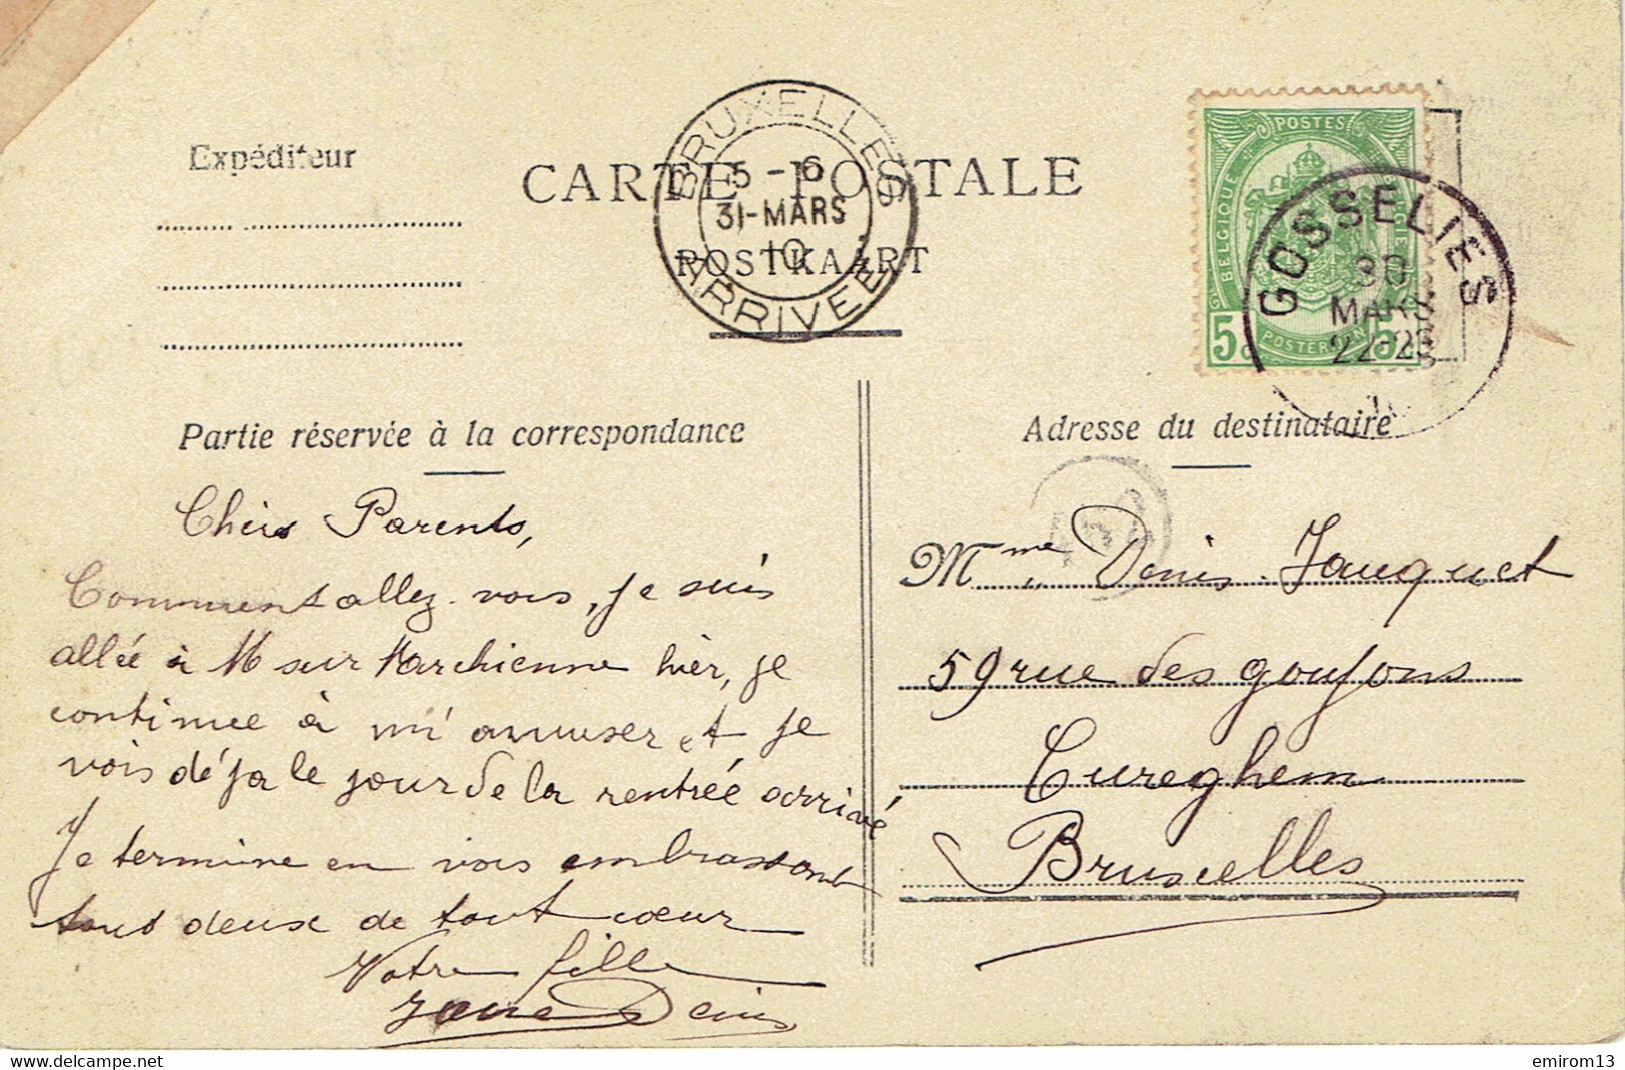 Expéditeur
CARTE POSTALE
POSTKAART
BRUXELLES
5-6
31-MARS
10
ARRIVEE
POSTES
BELGIQUE
BELGIE
5c
POSTERIJEN
5
GOSSELIES
30
MARS
22-23
Partie réservée à la correspondance
Adresse du destinataire
Chers Parents,
Comment allez-vous, je suis
allée à M sur Marchienne hier, je
continue à m'amuser et je
vois déja le jour de la rentrée arrivé
Je termine en vous embrassant
tous deux de tout cœur
Votre fille
Denis
Mme Denis-Jauquet
59 rue des goujons
Cureghem
Bruxelles
delcampe.net
emirom13